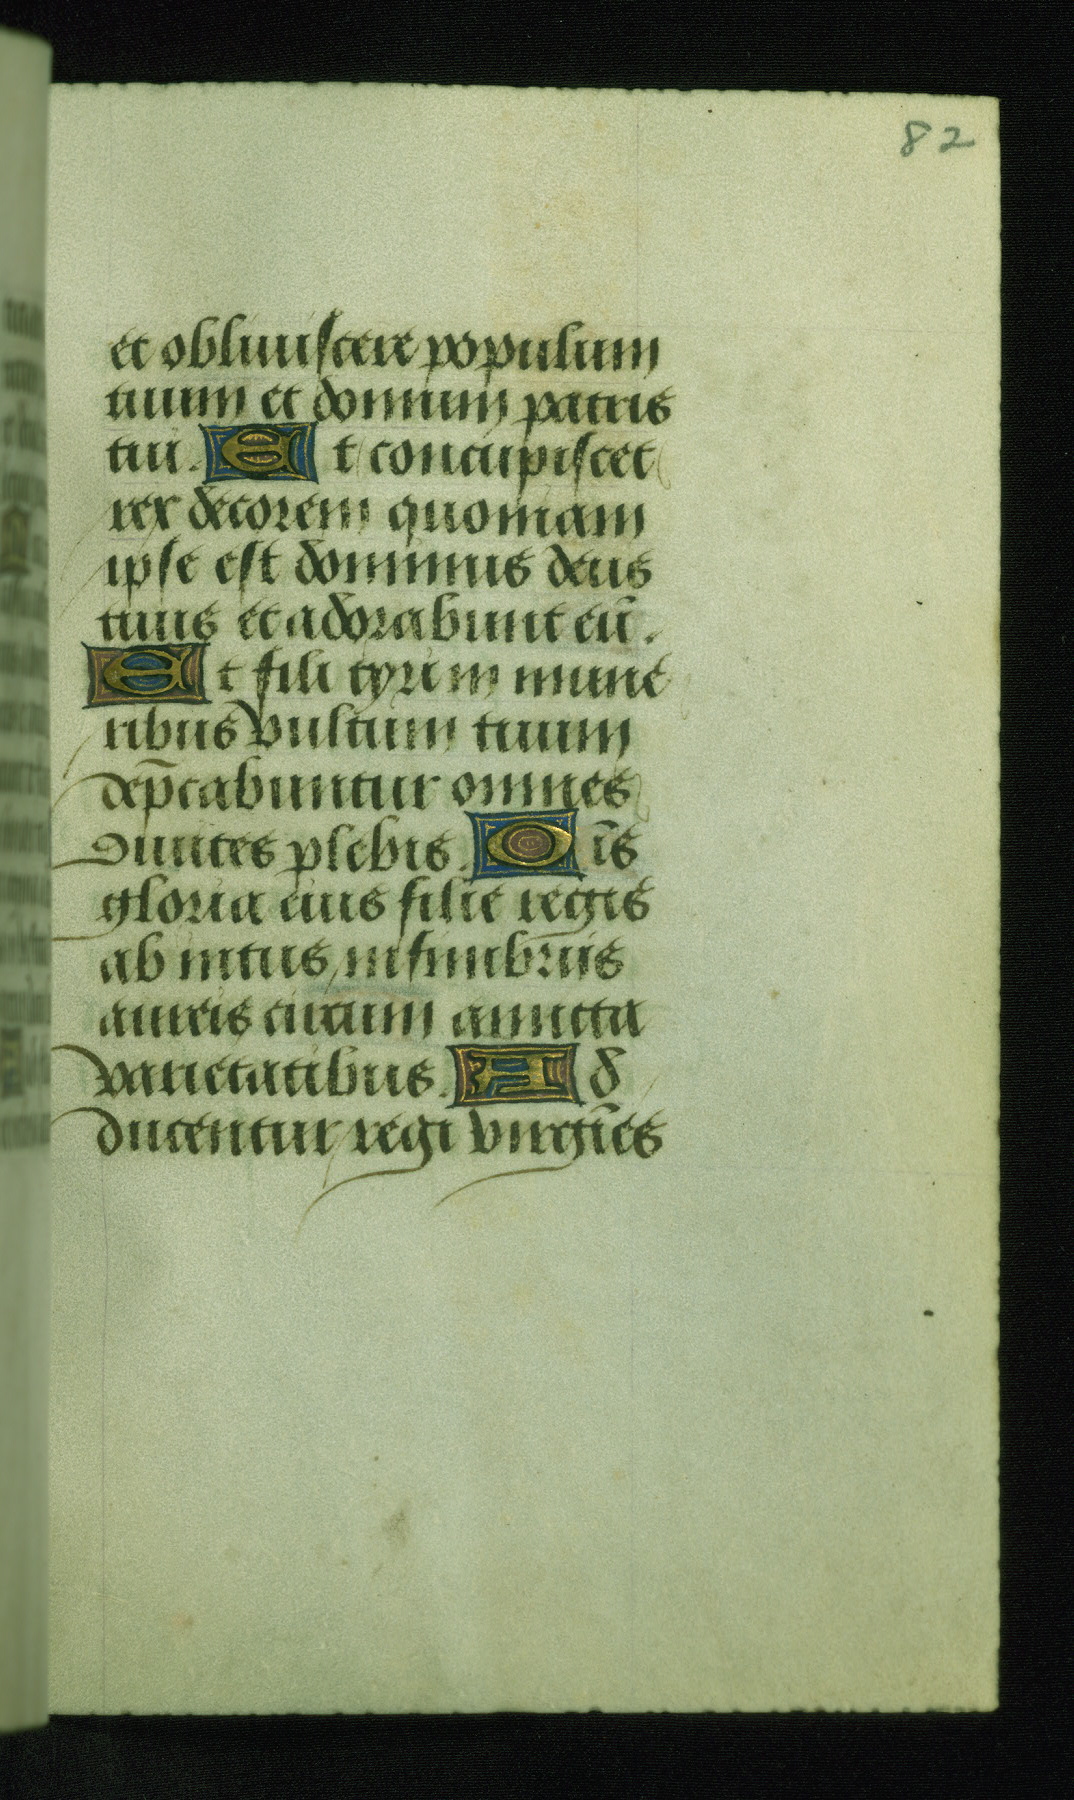 82
et obliuiscere populum
tuum et domum patris
tui. Et concupiscet
rex decorem quoniam
ipse est dominus deus
tuus et adorabunt eū.
Et filie tyri in mune
ribus vultum tuum
dep̄cabuntur omnes
diuites plebis. Oīs
gloria eius filie regis
ab intus in fimbriis
aureis circum amicta
varietatibus. Ad
ducentur regi virgīes